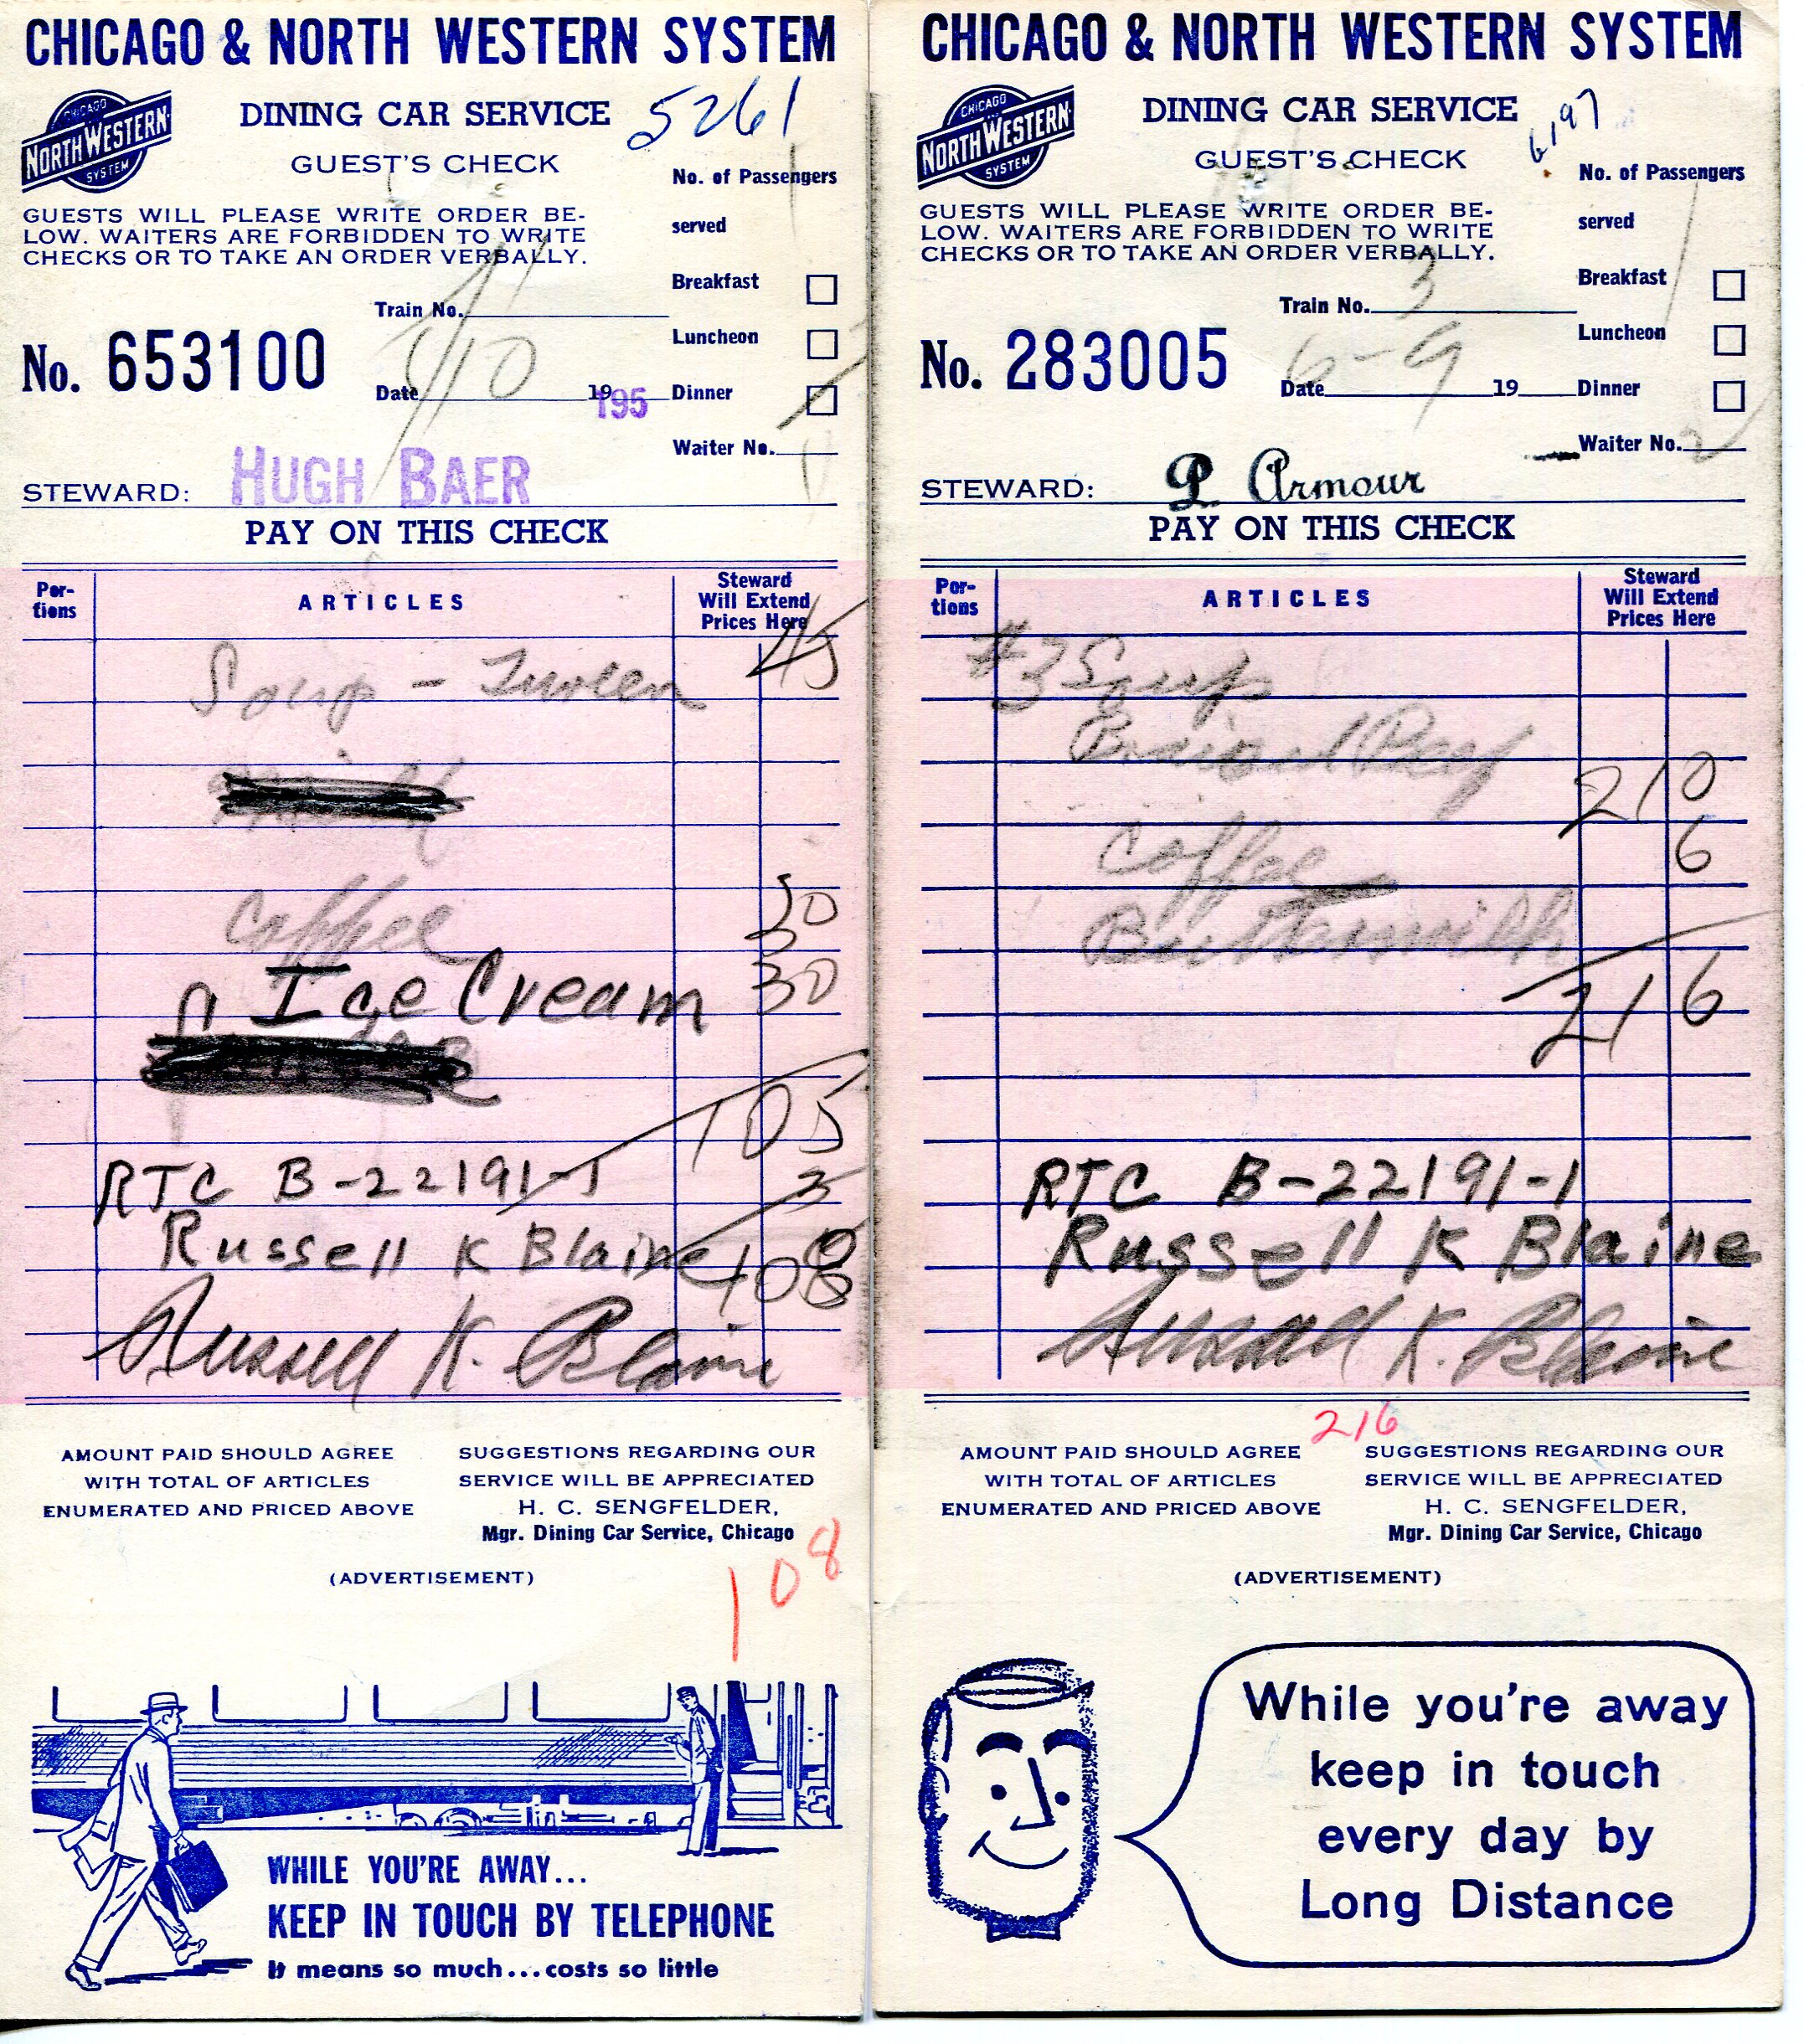 CHICAGO & NORTH WESTERN SYSTEM
CHICAGO
NORTH WESTERN
SYSTEM
DINING CAR SERVICE
5261
GUEST'S CHECK
No. of Passengers
served
1
GUESTS WILL PLEASE WRITE ORDER BE-
LOW. WAITERS ARE FORBIDDEN TO WRITE
CHECKS OR TO TAKE AN ORDER VERBALLY.
Breakfast
Train No.
Luncheon
No. 653100
Date 19 195
Dinner
Waiter No.
STEWARD: HUGH BAER
PAY ON THIS CHECK
Por-
tions
ARTICLES
Steward
Will Extend
Prices Here
Soup - Tureen 45
Coffee 30
Ice Cream 30
105
RTC B-22191-1 3
Russell K Blaine 108
Russell K. Blaine
AMOUNT PAID SHOULD AGREE
WITH TOTAL OF ARTICLES
ENUMERATED AND PRICED ABOVE
SUGGESTIONS REGARDING OUR
SERVICE WILL BE APPRECIATED
H. C. SENGFELDER,
Mgr. Dining Car Service, Chicago
108
(ADVERTISEMENT)
WHILE YOU'RE AWAY...
KEEP IN TOUCH BY TELEPHONE
It means so much...costs so little
CHICAGO & NORTH WESTERN SYSTEM
CHICAGO
NORTH WESTERN
SYSTEM
DINING CAR SERVICE
6197
GUEST'S CHECK
No. of Passengers
served
1
GUESTS WILL PLEASE WRITE ORDER BE-
LOW. WAITERS ARE FORBIDDEN TO WRITE
CHECKS OR TO TAKE AN ORDER VERBALLY.
Breakfast
Train No. 3
Luncheon
No. 283005
Date 6-9 19
Dinner
Waiter No. 2
STEWARD: P Armour
PAY ON THIS CHECK
Por-
tions
ARTICLES
Steward
Will Extend
Prices Here
#3 Soup
Braised Beef 210
Coffee 6
Buttermilk
216
RTC B-22191-1
Russell K Blaine
Russell K. Blaine
216
AMOUNT PAID SHOULD AGREE
WITH TOTAL OF ARTICLES
ENUMERATED AND PRICED ABOVE
SUGGESTIONS REGARDING OUR
SERVICE WILL BE APPRECIATED
H. C. SENGFELDER,
Mgr. Dining Car Service, Chicago
(ADVERTISEMENT)
While you're away
keep in touch
every day by
Long Distance